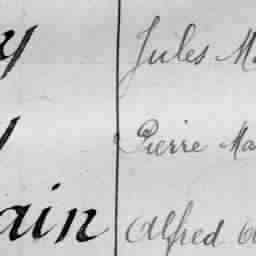 y Jules Ma
Pierre Ma
ain Alfred